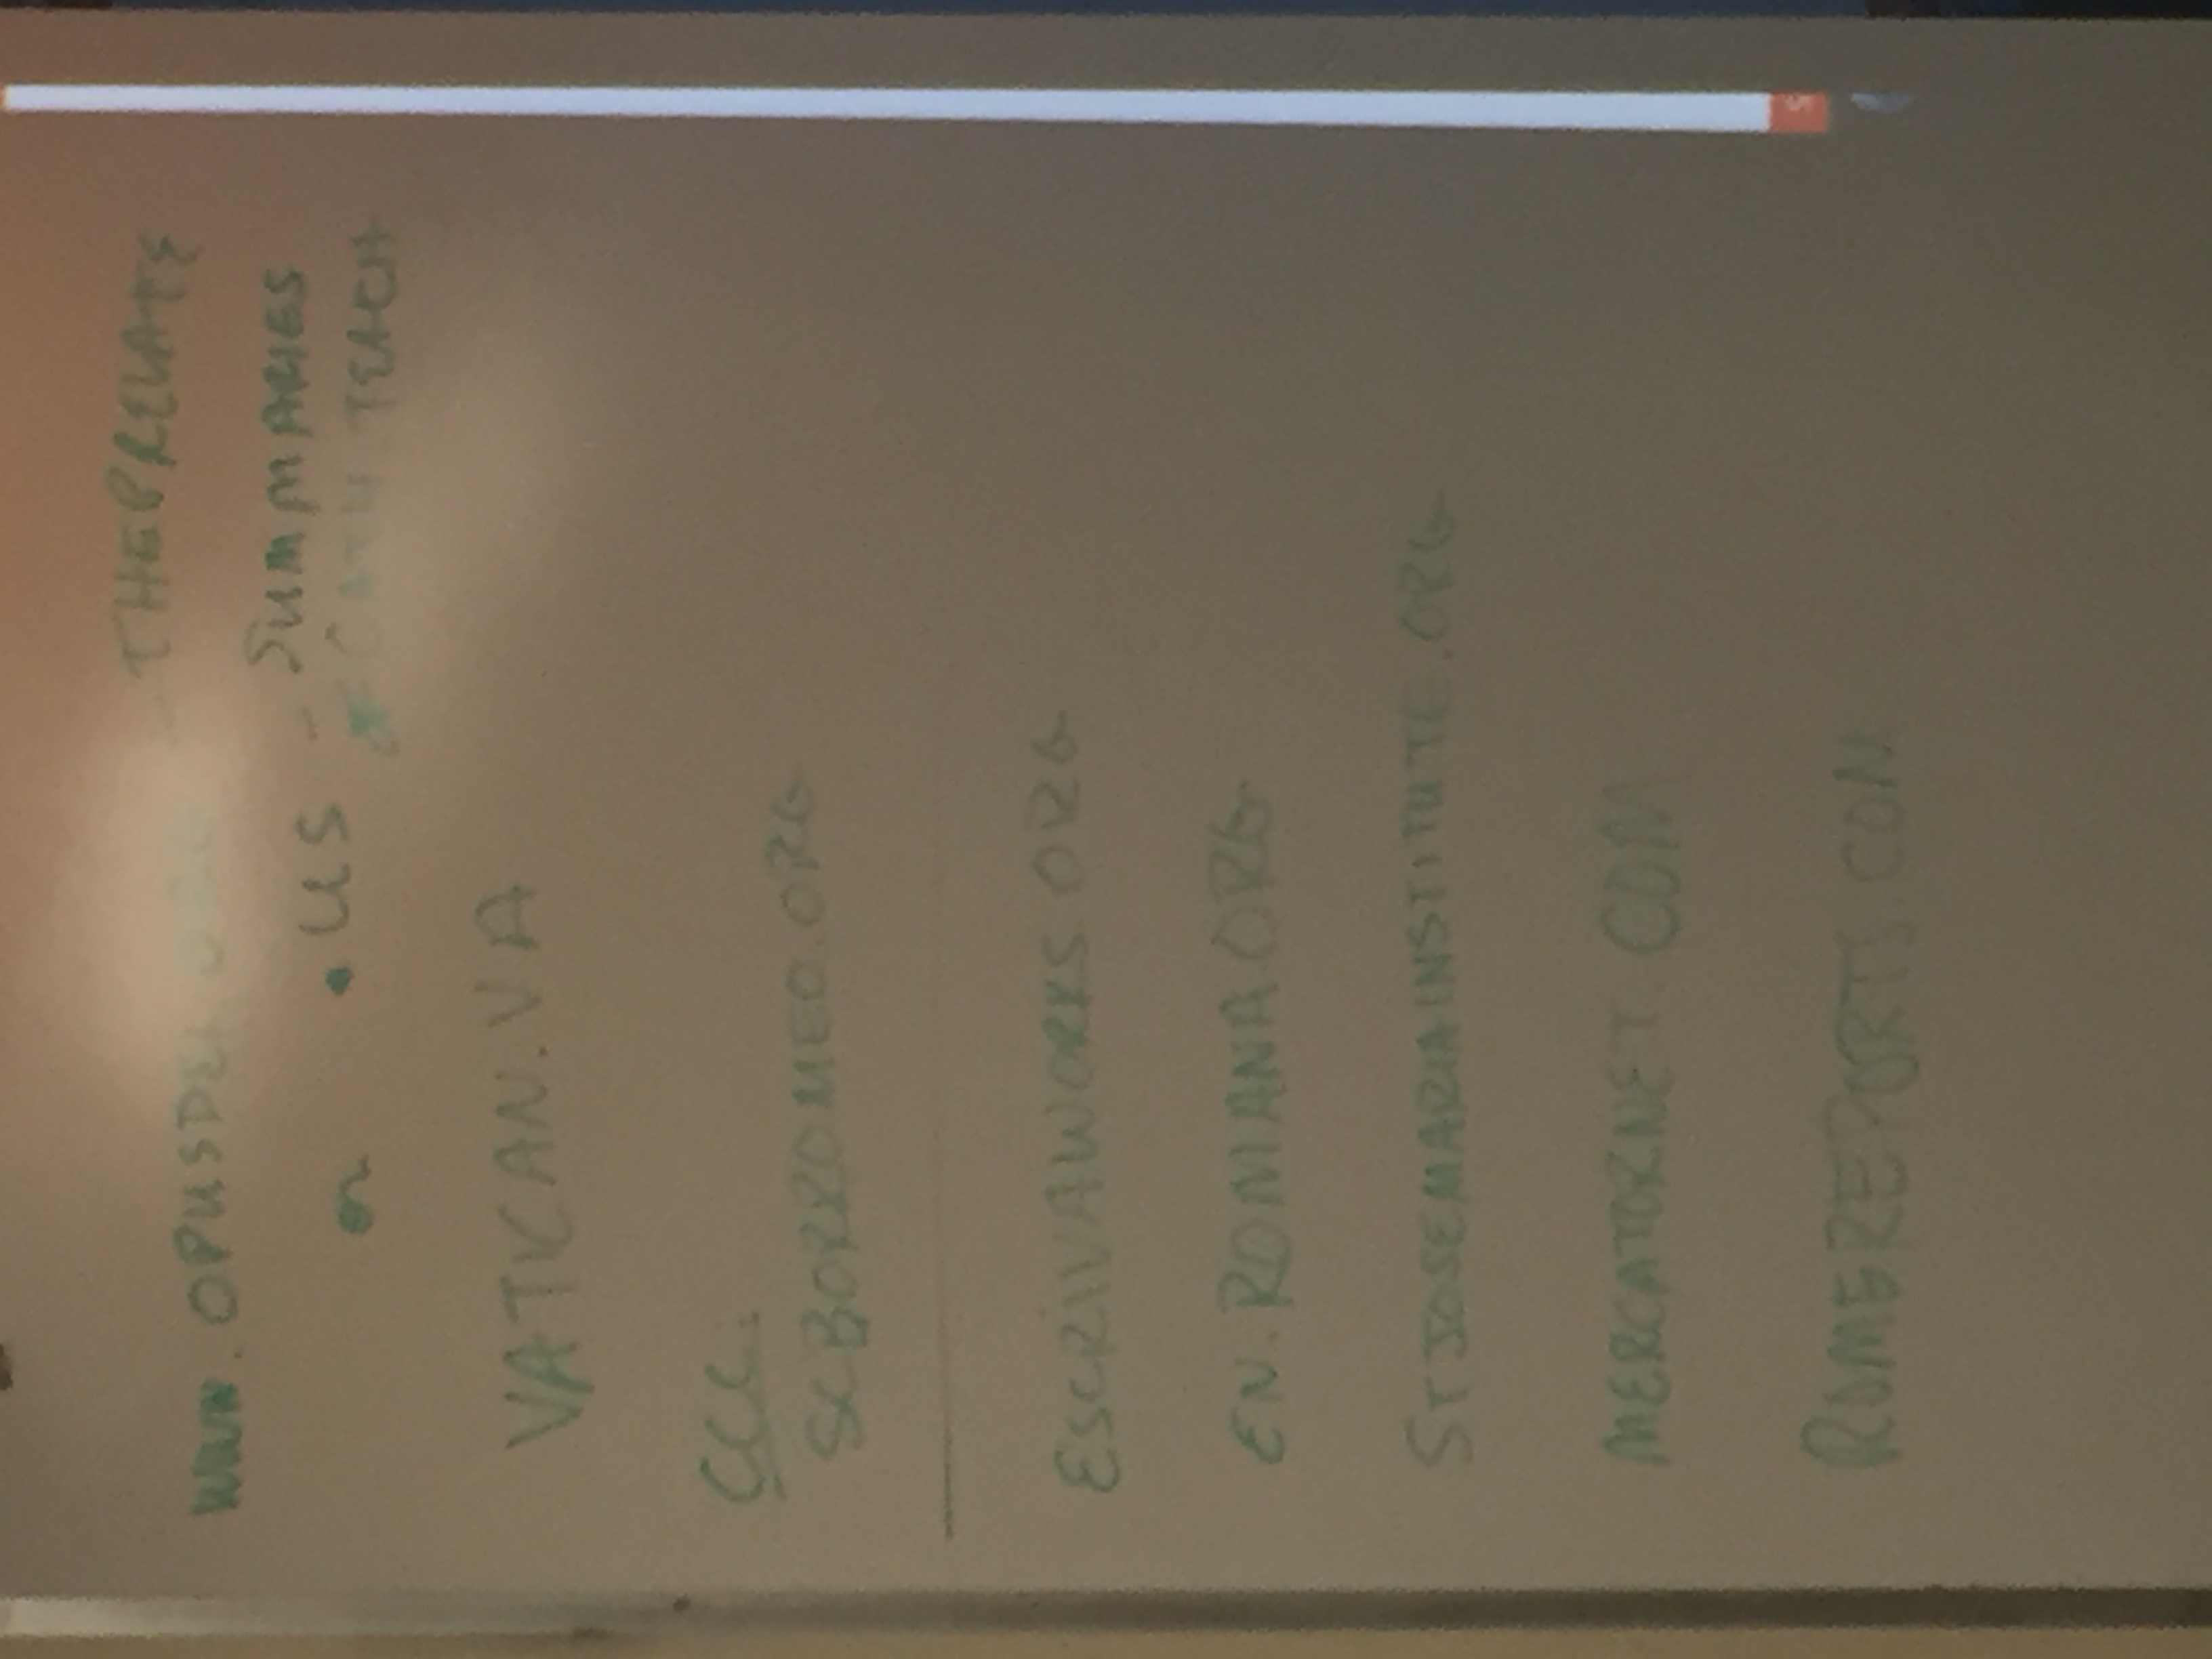 WWW.OPUSDEI.ORG - THE PRELATE
• US - SUMMARIES
CATH. TEACH
VATICAN.VA
CCC
SCBORROMEO.ORG
ESCRIVAWORKS.ORG
EN.ROMANA.ORG
STJOSEMARIAINSTITUTE.ORG
MERCATORNET.COM
ROMEREPORTS.COM